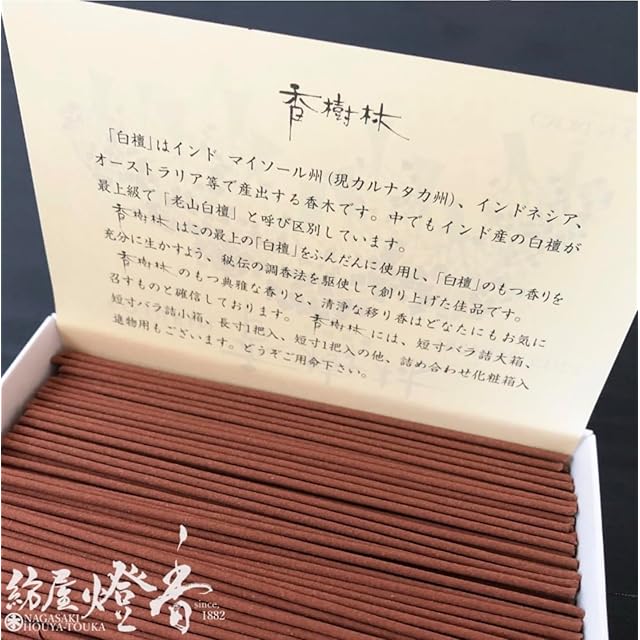 香樹林
「白檀」はインド マイソール州(現カルナタカ州)、インドネシア、
オーストラリア等で産出する香木です。中でもインド産の白檀が
最上級で「老山白檀」と呼び区別しています。
香樹林はこの最上の「白檀」をふんだんに使用し、「白檀」のもつ香りを
充分に生かすよう、秘伝の調香法を駆使して創り上げた佳品です。
香樹林のもつ典雅な香りと、清浄な移り香はどなたにもお気に
召すものと確信しております。香樹林には、短寸バラ詰大箱、
短寸バラ詰小箱、長寸1把入、短寸1把入の他、詰め合わせ化粧箱入
進物用もございます。どうぞご用命下さい。
紡屋燈香
NAGASAKI
HOUYA-TOUKA
since,
1882